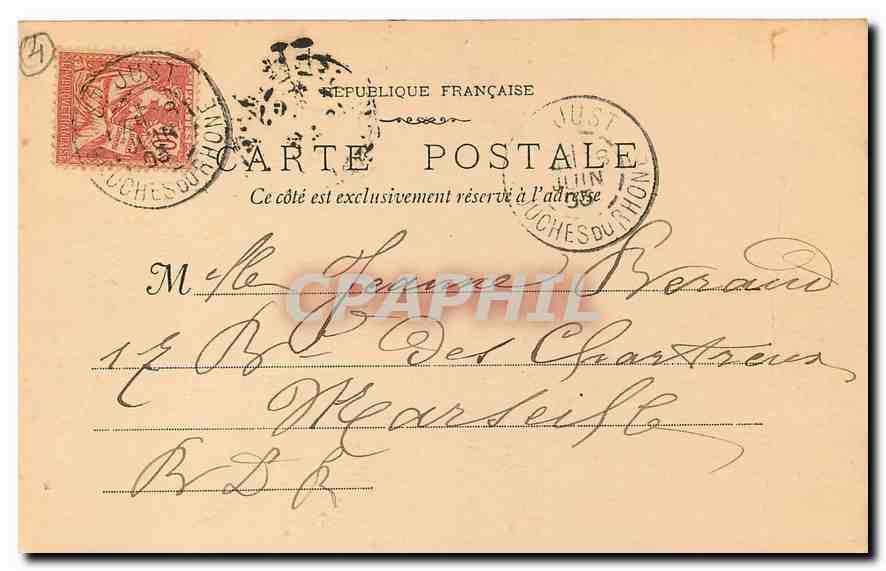 4
RÉPUBLIQUE FRANÇAISE
CARTE POSTALE
Ce côté est exclusivement réservé à l'adresse
JUST
JUIN
BOUCHES DU RHONE
JUST
JUIN
BOUCHES DU RHONE
Melle Jeanne Beraud
17 Bd des Chartreux
Marseille
B D R
CPAPHIL